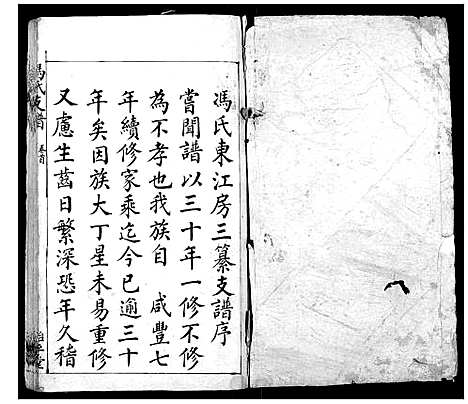 馮氏東江房三纂支譜序
嘗聞譜以三十年一修不修
為不孝也我族自 咸豐七
年續修家乘迄今已逾三十
年矣因族大丁星未易重修
又慮生齒日繁深恐年久稽
馮氏支譜